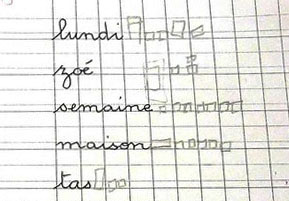 lundi
zoé
semaine
maison
tas